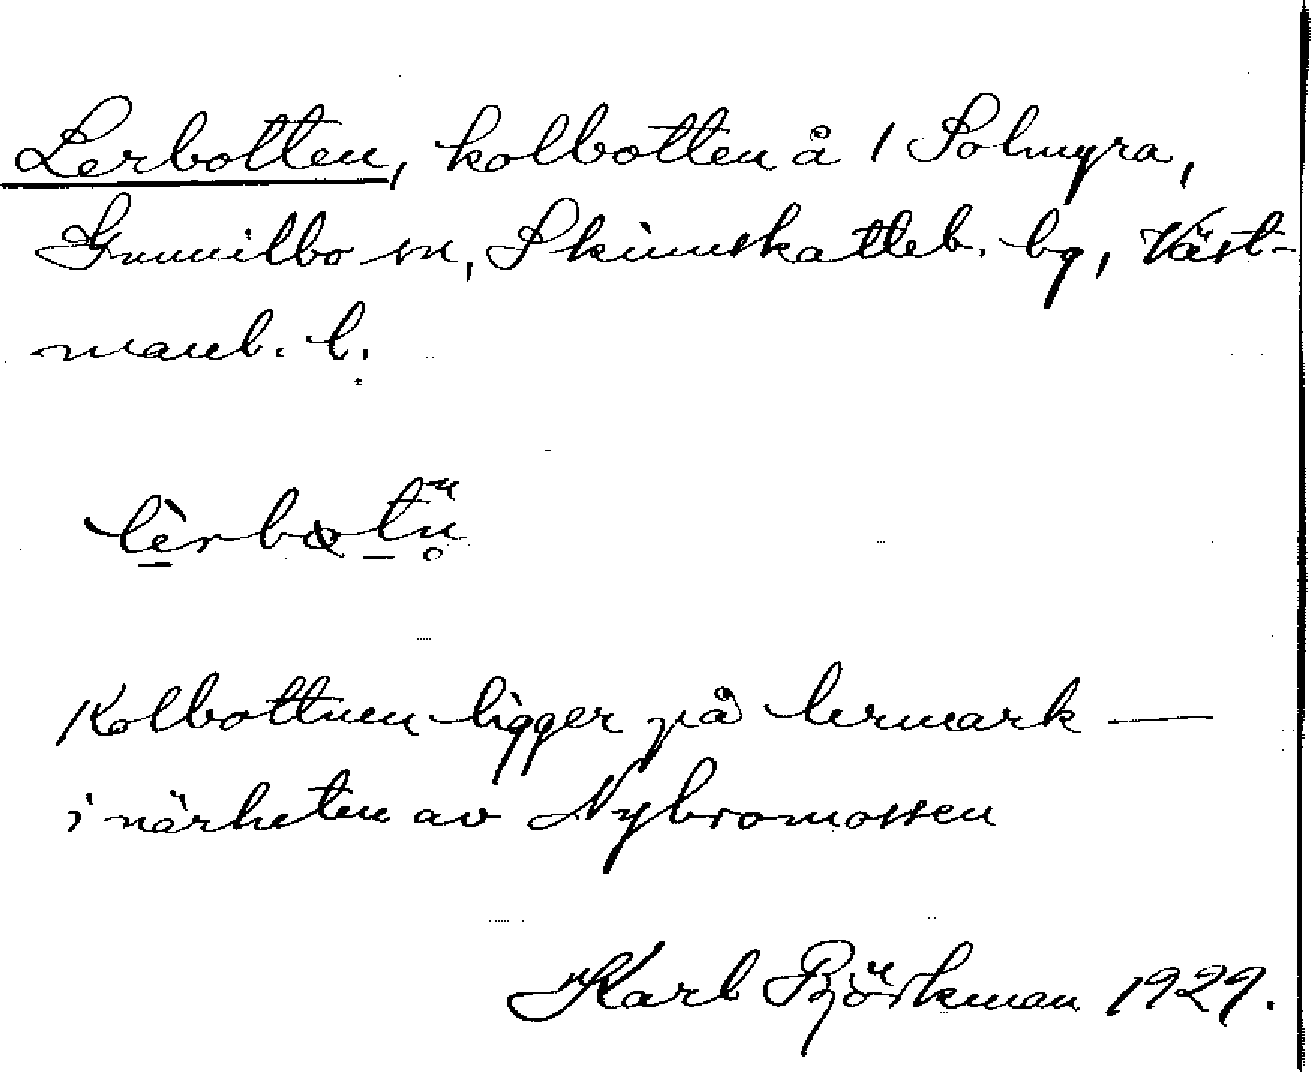 Lerbotten, kolbotten å 1 Solmyra,
Gunnilbo sn, Skinnskatteb. bg, Väst-
manl. l.
lèrbɷtn̥
Kolbottnen ligger på lermark —
i närheten av Nybromossen
Karl Björkman 1929.